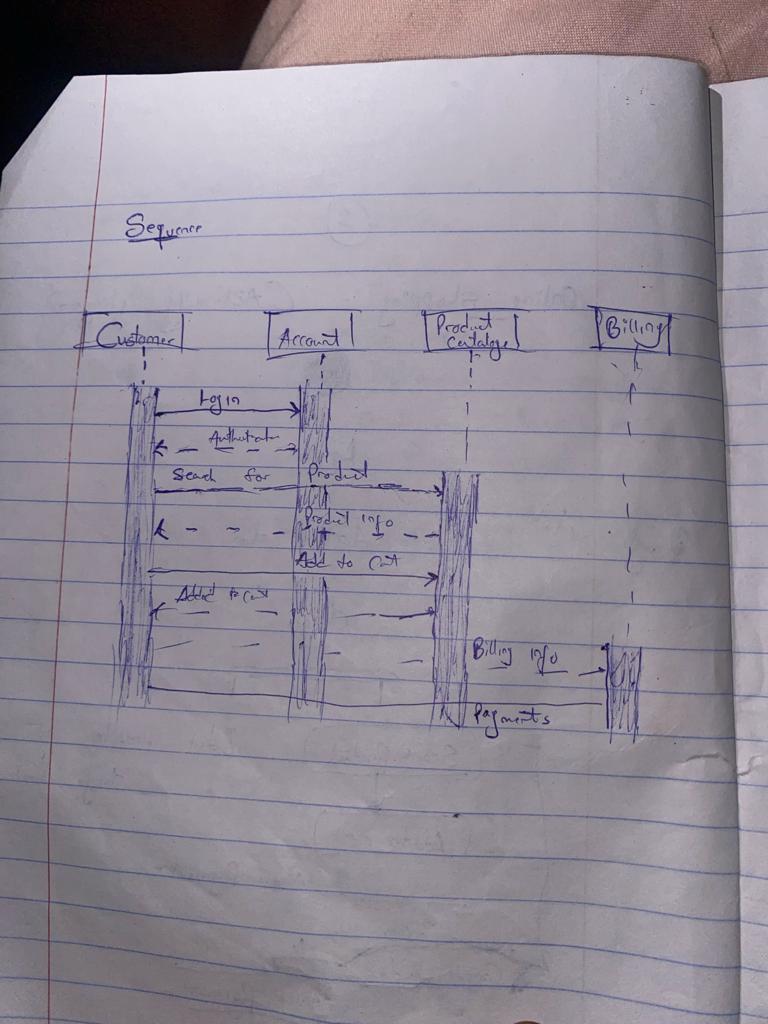 Sequence
Customer
Account
Product
Cataloge
Billing
Login
Search for Product
Product info
Add to Cart
Added to Cart
Billing info
Payments